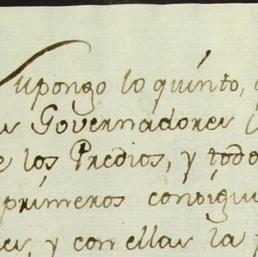 Supongo lo quinto,
Governadores
de los Predios, y todo
primeros consigui
y con ellas la